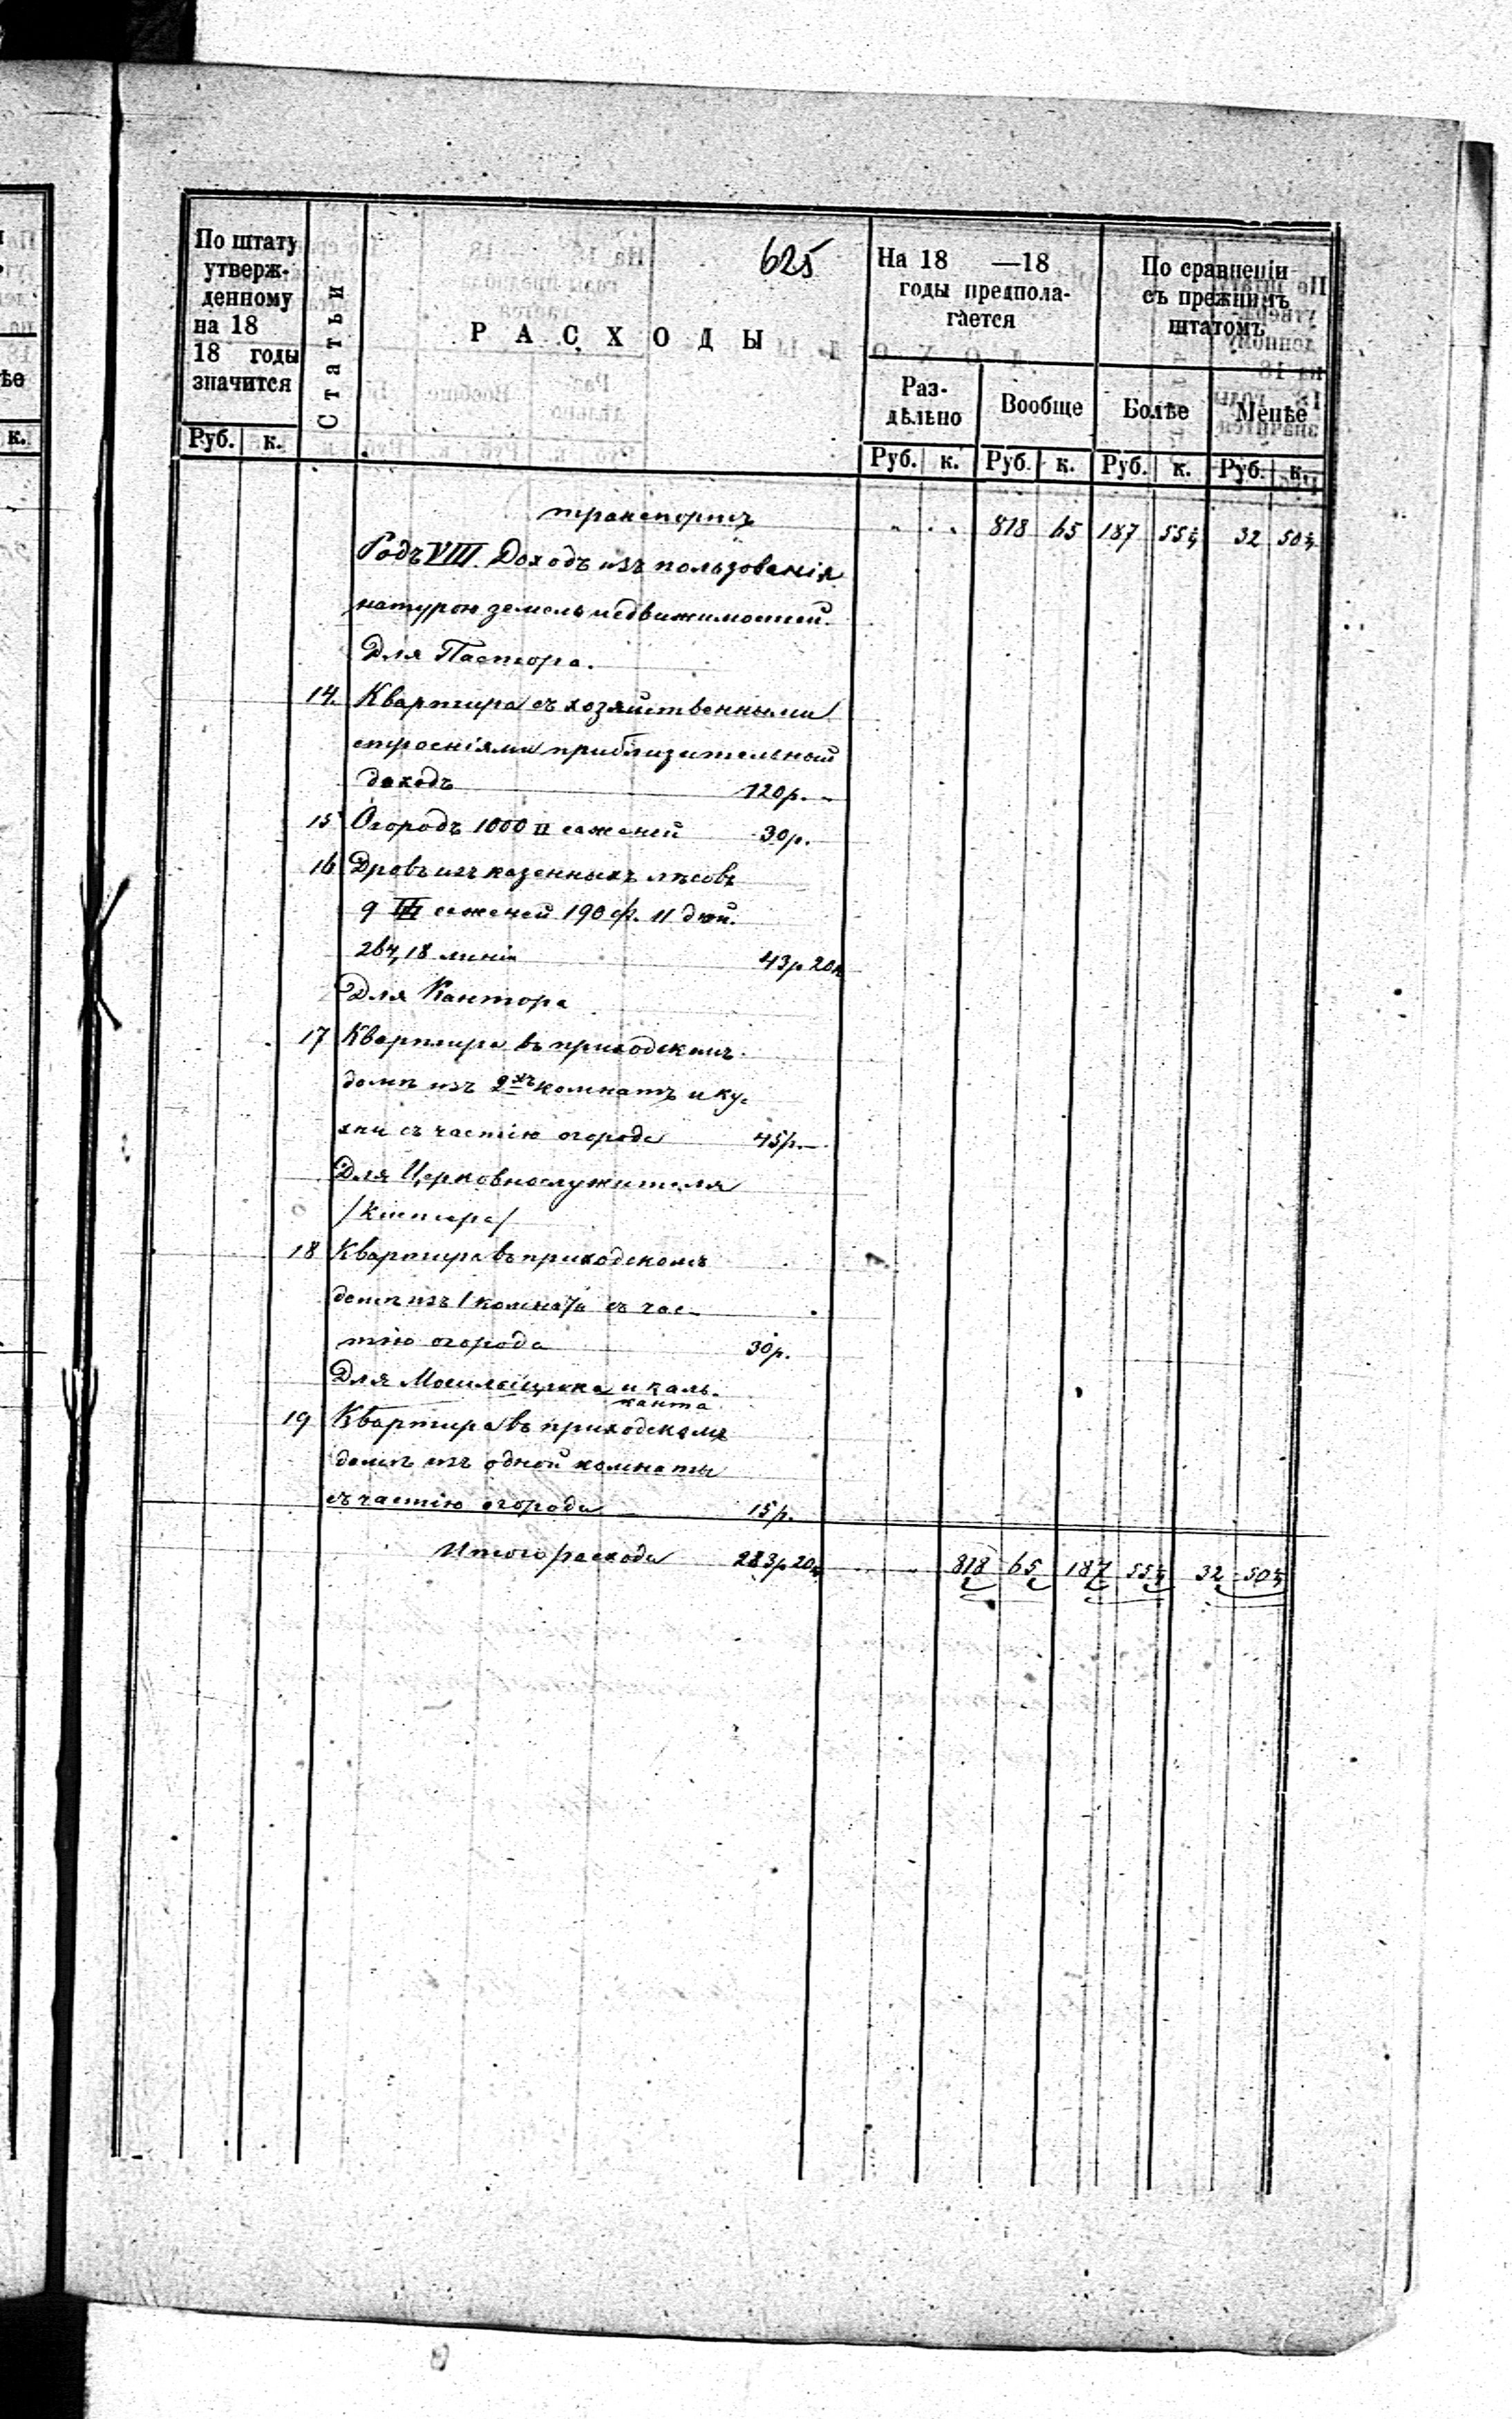 625
По штату
утверж-
денному
на 18
18 годы
значится
Статьи
РАСХОДЫ
На 18 —18
годы предпола-
гается
По сравненіи
съ прежнимъ
штатомъ
Раз-
дѣльно
Вообще
Болѣе
Менѣе
Руб. к. Руб. к. Руб. к. Руб. к. Руб. к.
транспортъ 818 65 187 55½ 32 50½
Родъ VIII. Доходъ изъ пользованія
натурою земель недвижимостей.
Для Пастора.
14. Квартира съ хозяйственными
строеніями приблизительный
доходъ 120р. -
15 Огородъ 1000 □ саженей 30р.
16 Дровъ изъ казенныхъ лѣсовъ
9 саженей 190 ф. 11 дюй.
264,18 линій 43р 20к
Для Кантора
17 Квартира въ приходскомъ
домѣ изъ 2хъ комнатъ и ку-
хни съ частію огорода 45р. -
Для Церковнослужителя
/Кистера/
18 Квартира въ приходскомъ
домѣ изъ 1 комнаты съ час-
тію огорода 30р.
Для Могильщика и каль-
канта
19 Квартира въ приходскомъ
домѣ изъ одной комнаты
съ частію огорода 15р.
Итого расхода 283р 20к 818 65 187 55½ 32 50½